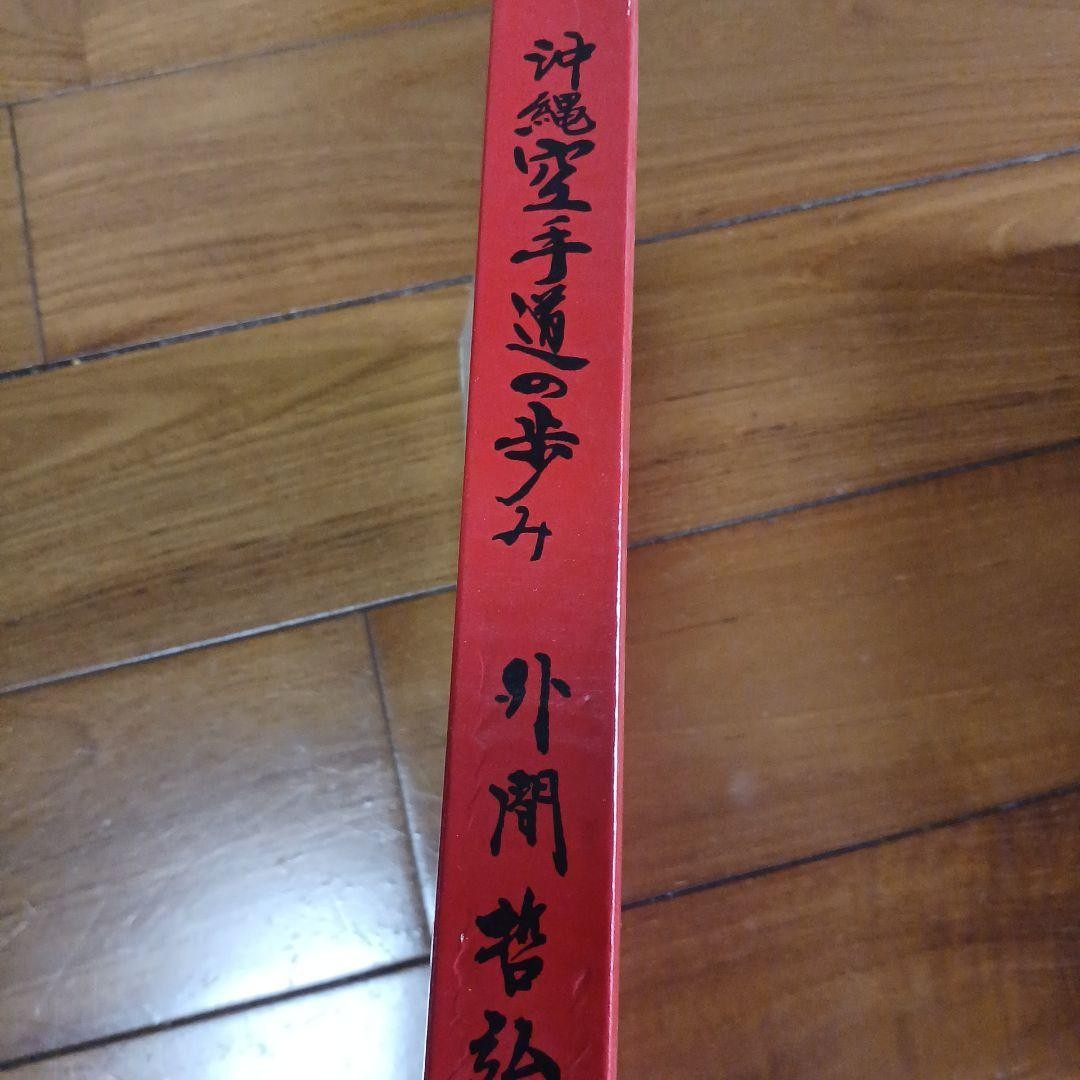 沖縄空手道の歩み 外間哲弘